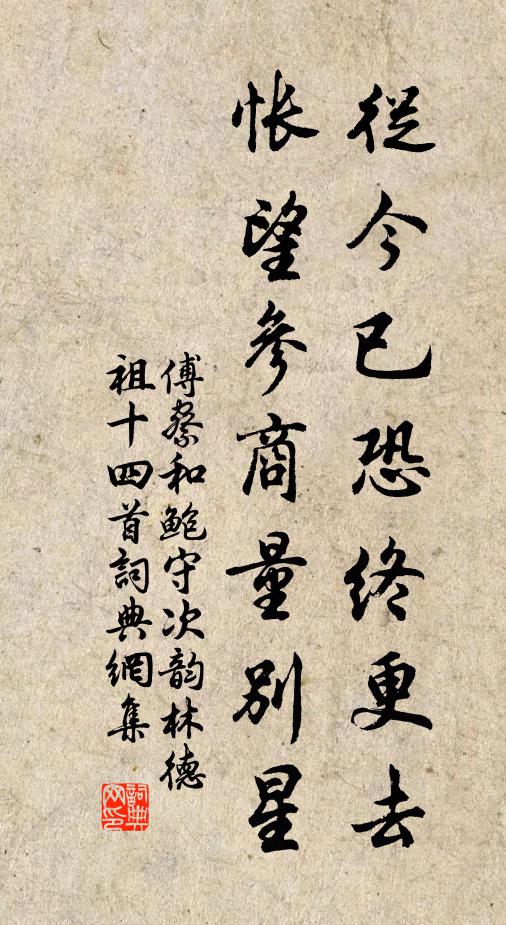 從今已恐終更去
悵望參商量別星
傅察和鮑守次韵林德
祖十四首詞典網集
詞典
网印